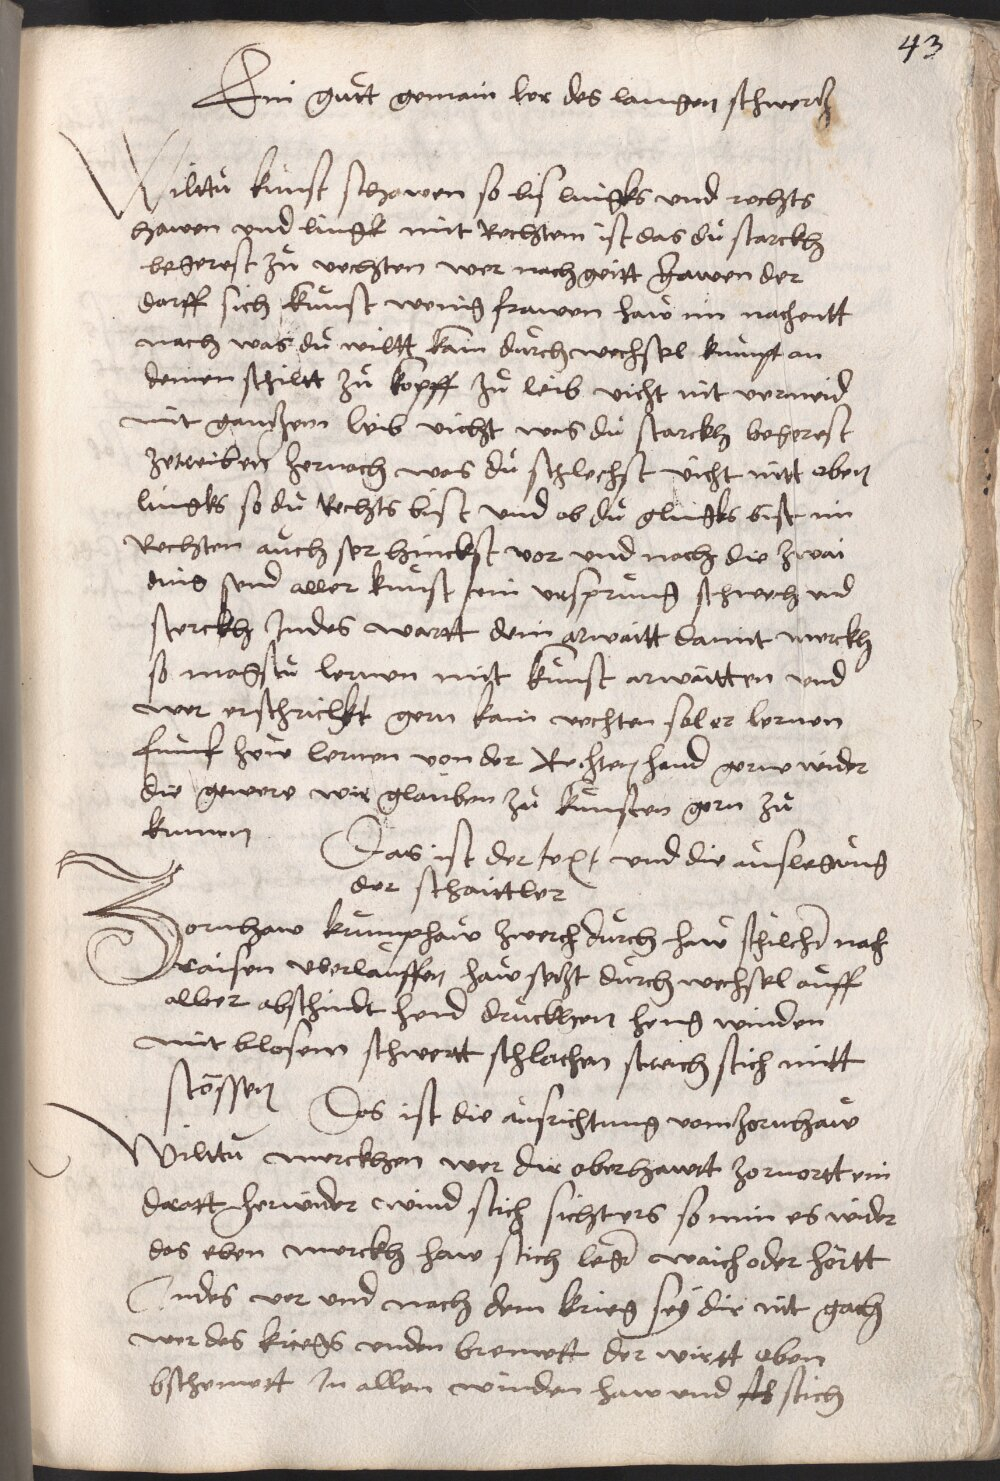 43
Ein gutt gemain ler des langen schwertz
Wilttu kunst schawen so bis lingks und rechts
hawen und lingk mit Rechtem ist das du starckh
begerest zu vechten wer nach geitt hawen der
darff sich kunst wenig frawen haw im nachentt
nach was du willt kain durchwechsel kumpt an
deinen schiltt zu kopff zu leib vicht nit vermeid
mit gantzem leib vicht was du starckh begerest
zetreiben hernach was du schlechst vicht nitt oben
lingks so du Rechts bist und ob du glingks bist im
Rechten auch ser hinckst vor und nach die zwai
ding send aller kunst ein ursprung schwech und
sterckh Indes wartt dein arwaitt damit merckh
so magstu lernen mit kunst arwaitten und
wer erschrickt gern kain vechten sol er lernen
funf hew lernen von der Rechten hand gerne wider
die gewere wir glauben zu kunsten gern zu
kumen
Das ist der text und die auslegung
der schaittler
Zornhaw krumphaw zwerch durch haw schilchr nach
raisen uberlauffen haw setzt durchwechsel auff
alber abschindt hend druckhen heng winden
mit blosem schwertt schlachen streich stich mitt
stössen
Das ist die ausrichtung vom zornhaw
Wilttu merckhen wer dir oberhawtt zornortt ein
drott herwider wind stich sichters so nim es wider
das eben merckh haw stich leger waich oder hörtt
Indes vor und nach dem krieg sey dir nit gach
wer des kriegs unden bremett der wirtt oben
bschemett In allen winden haw und stich